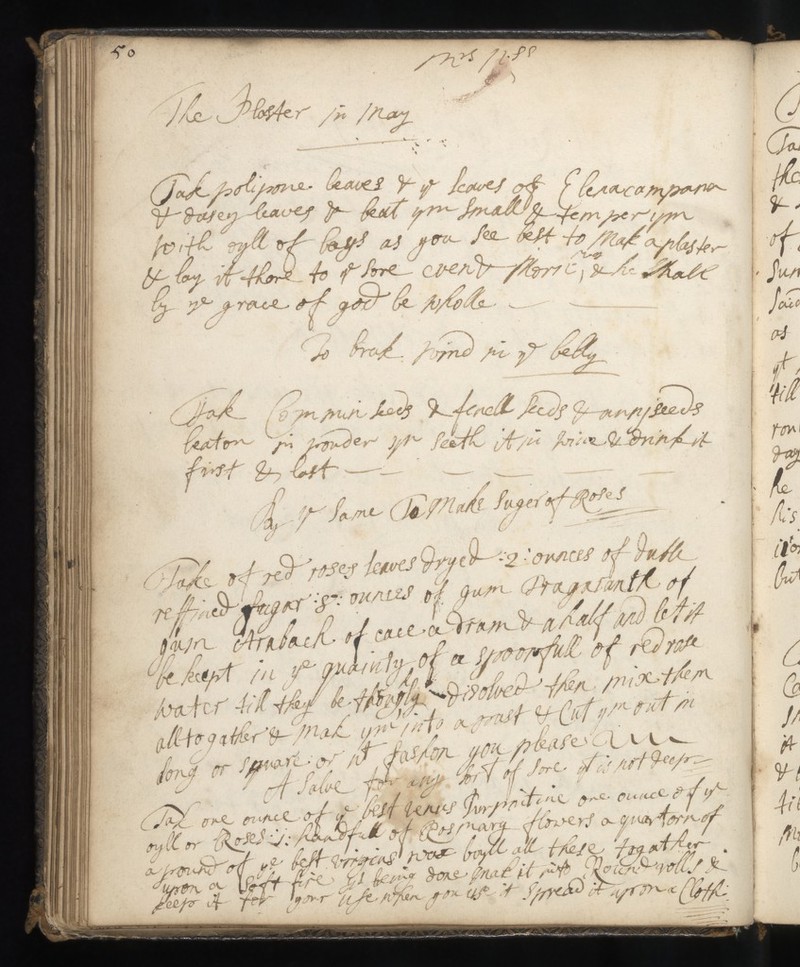 50
Mrs
The Plaster in May
Tak polipone leaves & ye leaves of Elenacampana
& dasey leaves & beat ym small & temper ym
with oyll of bays as you see best to mak a plaster
& lay it thare to ye sore even & Morn & he shall
by ye grace of god be wholle
To brak wind in ye belly
Tak Commin seeds & fenell seeds & annyseeds
beaton in pouder yn seeth it in wine & drink it
first & last
By ye same To Make Suger of Roses
Take of red roses leaves dryed :2: ounces of dubll
reffined sugar :8: ounces of gum Dragasantk of
gum Arabach of cace a dram & a half and let it
be keept in ye quainty of a spoonfull of red rose
water till they be disolved then mix them
alltogather & mak ym into a past & Cut ym out in
long or square or wt fashon you please
A Salve for any sort of sore yt is not deep
Tak one ounce of ye best venus Turpintine one ounce of ye
oyll or Roses :1: handfull of Rosmary flowers a quartorn of
a pound of ye best virgens wax boyll all these togather
upon a soft fire yt being done mak it into Round rolls &
keep it for your use when you use it spread it upon a Cloth